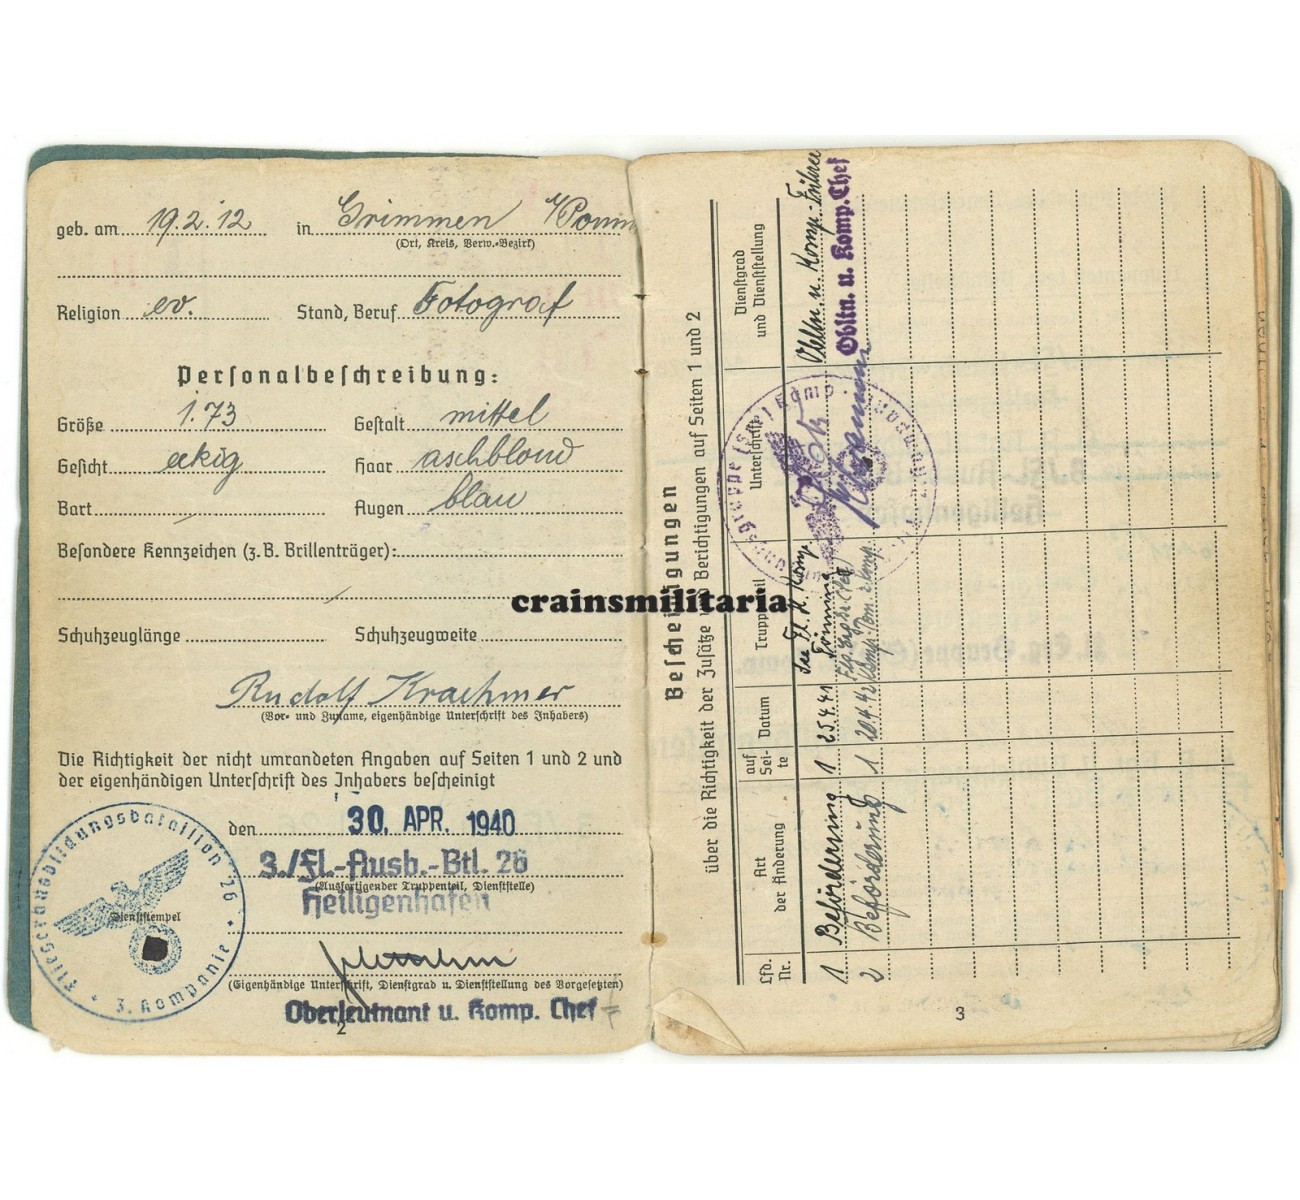 geb. am 19.2.12 in Grimmen /Pomm
(Ort, Kreis, Verw.-Bezirk)
Religion ev. Stand, Beruf Fotograf
Personalbeschreibung:
Größe 1.73 Gestalt mittel
Gesicht eckig Haar aschblond
Bart – Augen blau
Besondere Kennzeichen (z.B. Brillenträger):
Schuhzeuglänge Schuhzeugweite
Rudolf Kraehmer
(Vor- und Zuname, eigenhändige Unterschrift des Inhabers)
Die Richtigkeit der nicht umrandeten Angaben auf Seiten 1 und 2 und
der eigenhändigen Unterschrift des Inhabers bescheinigt
den 30. APR. 1940
3./Fl.-Ausb.-Btl. 26
(Ausfertigender Truppenteil, Dienststelle)
Heiligenhafen
Fliegerausbildungsbataillon 26
3. Kompanie
Dienststempel
(Eigenhändige Unterschrift, Dienstgrad u. Dienststellung des Vorgesetzten)
Oberleutnant u. Komp. Chef
2
crainsmilitaria
Bescheinigungen
über die Richtigkeit der Zusätze und Berichtigungen auf Seiten 1 und 2
Lfd. Nr.
Art der Änderung
auf Seite
Datum
Truppenteil
Unterschrift
Dienstgrad und Dienststellung
1 Beförderung 1 25.4.41
Obltn u. Komp.-Führer
2 Beförderung 1 20.4.42
Obltn. u. Komp. Chef
3